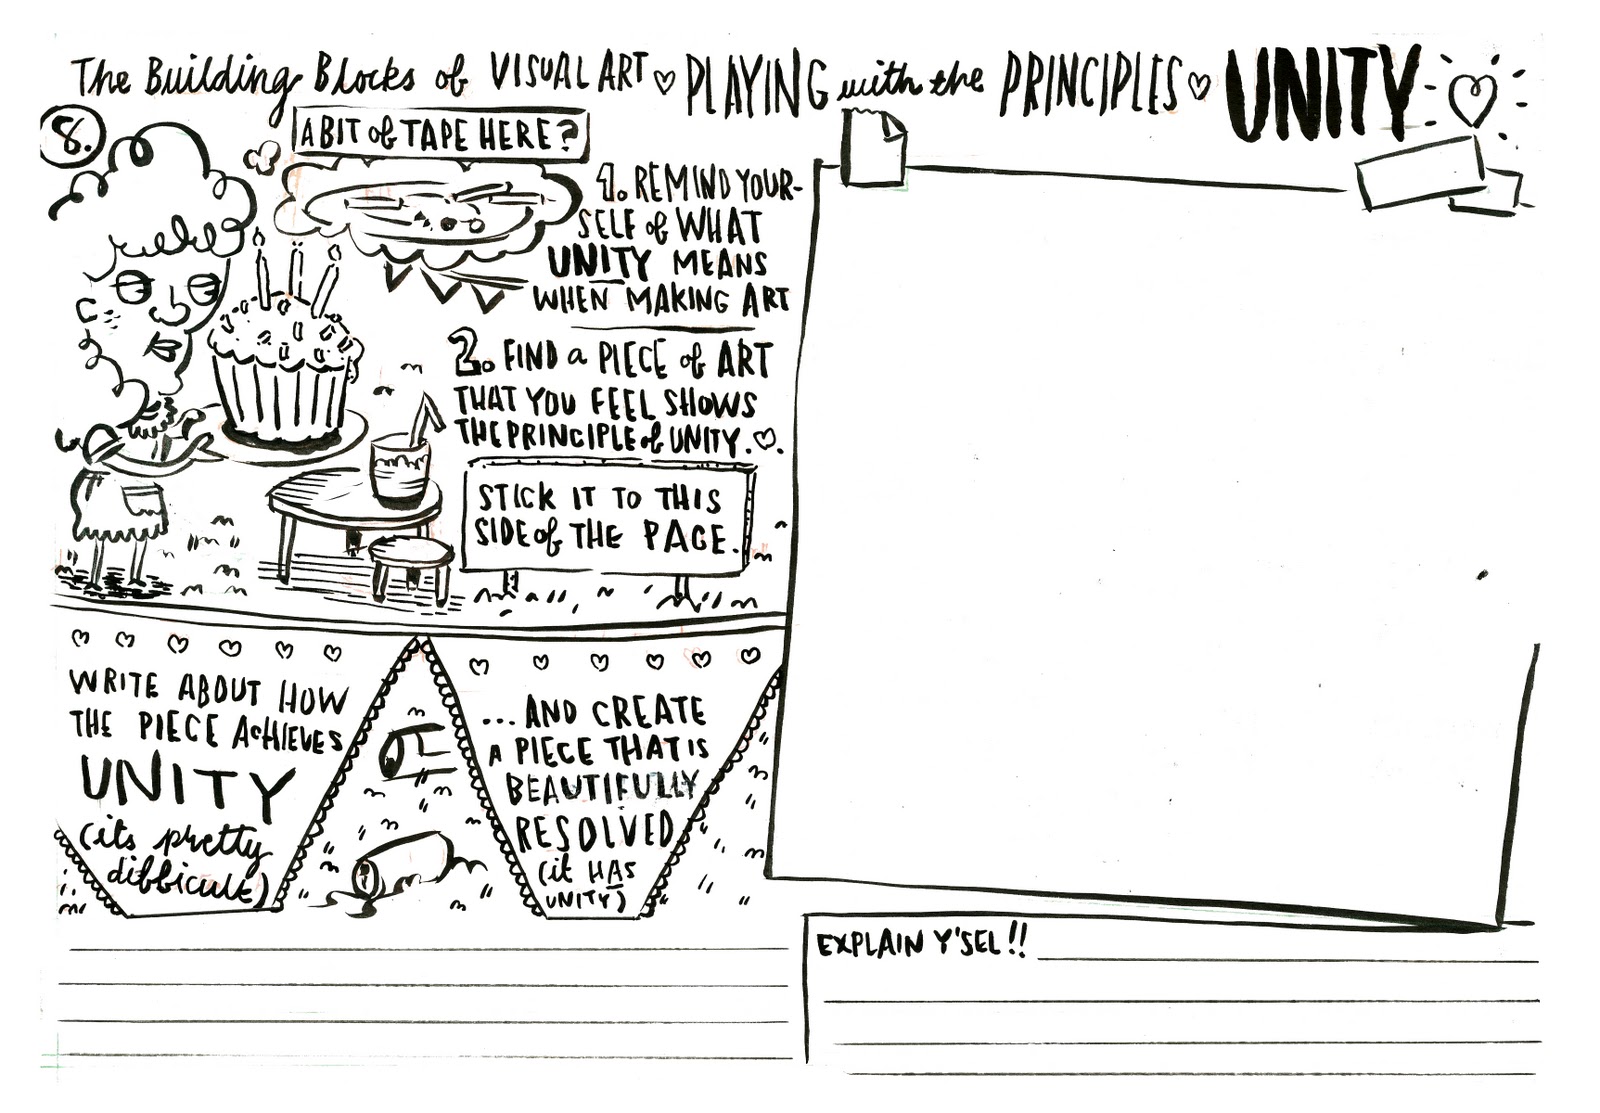 The Building Blocks of VISUAL ART ♡ PLAYING with the PRINCIPLES ♡ UNITY
8.
A BIT of TAPE HERE?
1. REMIND YOUR-
SELF of WHAT
UNITY MEANS
WHEN MAKING ART
2. FIND a PIECE of ART
THAT YOU FEEL SHOWS
THE PRINCIPLE of UNITY. ♡.
STICK IT TO THIS
SIDE of THE PAGE.
WRITE ABOUT HOW
THE PIECE ACHIEVES
UNITY
(its pretty
difficult)
...AND CREATE
A PIECE THAT IS
BEAUTIFULLY
RESOLVED
(it HAS
UNITY)
EXPLAIN Y'SEL!!